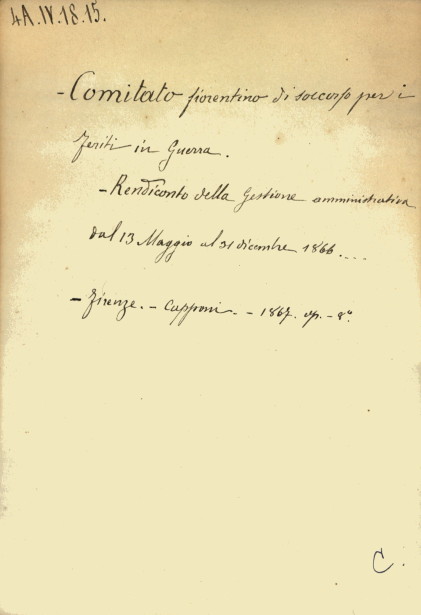 4A.IV.18.15.
- Comitato fiorentino di soccorso per i
feriti in Guerra.
- Rendiconto della Gestione amministrativa
dal 13 Maggio al 31 dicembre 1866....
- Firenze. - Capponi. - 1867. op. - 8°.
C.